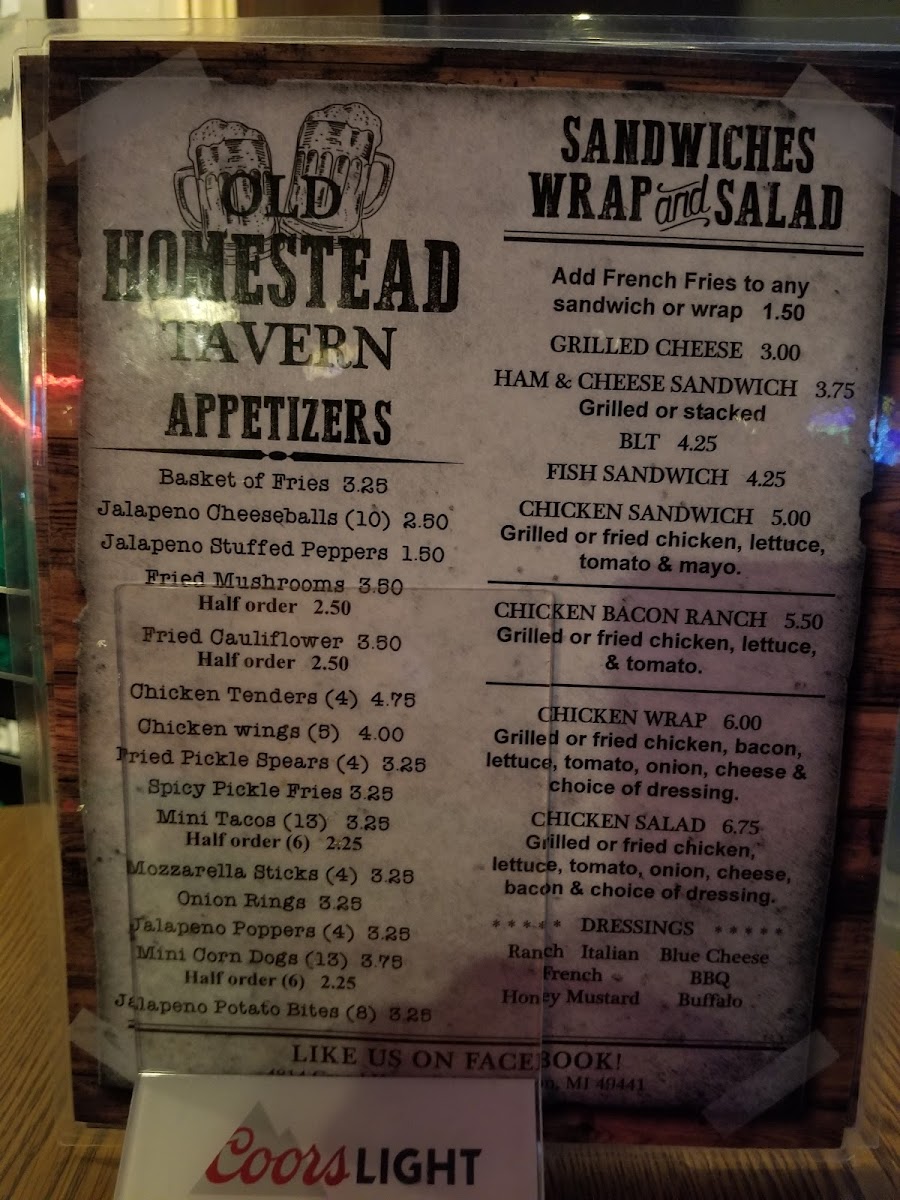 OLD
HOMESTEAD
TAVERN
APPETIZERS
Basket of Fries 3.25
Jalapeno Cheeseballs (10) 2.50
Jalapeno Stuffed Peppers 1.50
Fried Mushrooms 3.50
Half order 2.50
Fried Cauliflower 3.50
Half order 2.50
Chicken Tenders (4) 4.75
Chicken wings (5) 4.00
Fried Pickle Spears (4) 3.25
Spicy Pickle Fries 3.25
Mini Tacos (13) 3.25
Half order (6) 2.25
Mozzarella Sticks (4) 3.25
Onion Rings 3.25
Jalapeno Poppers (4) 3.25
Mini Corn Dogs (13) 3.75
Half order (6) 2.25
Jalapeno Potato Bites (8) 3.25
SANDWICHES
WRAP and SALAD
Add French Fries to any
sandwich or wrap 1.50
GRILLED CHEESE 3.00
HAM & CHEESE SANDWICH 3.75
Grilled or stacked
BLT 4.25
FISH SANDWICH 4.25
CHICKEN SANDWICH 5.00
Grilled or fried chicken, lettuce,
tomato & mayo.
CHICKEN BACON RANCH 5.50
Grilled or fried chicken, lettuce,
& tomato.
CHICKEN WRAP 6.00
Grilled or fried chicken, bacon,
lettuce, tomato, onion, cheese &
choice of dressing.
CHICKEN SALAD 6.75
Grilled or fried chicken,
lettuce, tomato, onion, cheese,
bacon & choice of dressing.
* * * * * DRESSINGS * * * * *
Ranch Italian Blue Cheese
French BBQ
Honey Mustard Buffalo
LIKE US ON FACEBOOK!
MI 49441
Coors LIGHT